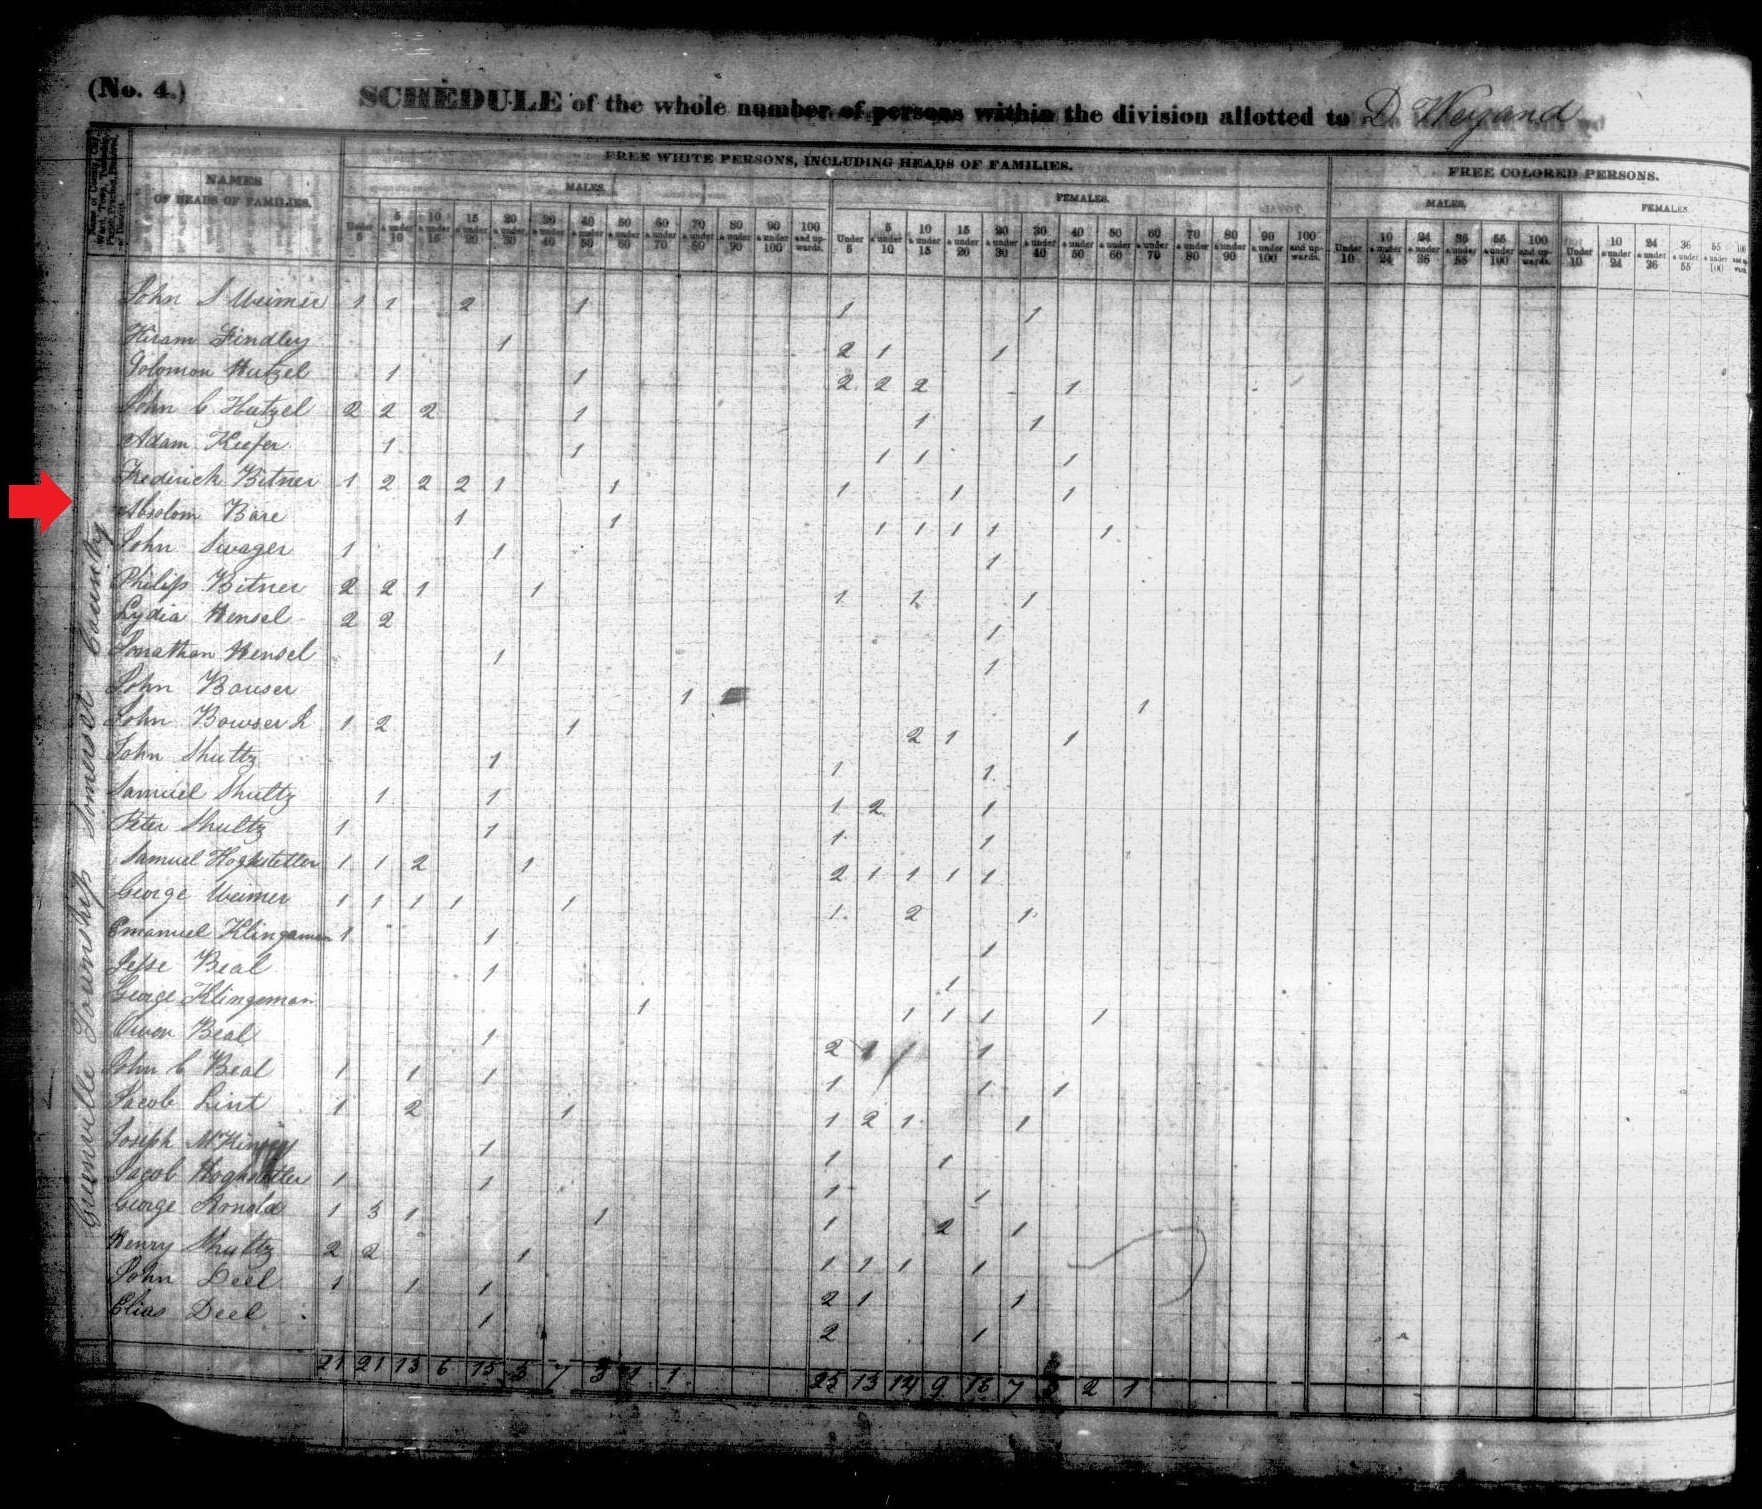 (No. 4.)
SCHEDULE of the whole number of persons within the division allotted to D Weyand
FREE WHITE PERSONS, INCLUDING HEADS OF FAMILIES.
FREE COLORED PERSONS.
NAMES
OF HEADS OF FAMILIES.
MALES.
FEMALES.
MALES.
FEMALES.
Under 5 | 5 & under 10 | 10 & under 15 | 15 & under 20 | 20 & under 30 | 30 & under 40 | 40 & under 50 | 50 & under 60 | 60 & under 70 | 70 & under 80 | 80 & under 90 | 90 & under 100 | 100 and upwards. | Under 5 | 5 & under 10 | 10 & under 15 | 15 & under 20 | 20 & under 30 | 30 & under 40 | 40 & under 50 | 50 & under 60 | 60 & under 70 | 70 & under 80 | 80 & under 90 | 90 & under 100 | 100 and upwards. | Under 10 | 10 & under 24 | 24 & under 36 | 36 & under 55 | 55 & under 100 | 100 and upwards. | Under 10 | 10 & under 24 | 24 & under 36 | 36 & under 55 | 55 & under 100
Greenville Township Somerset County
John S Weimer 1 1 2 1 1 1
Hiram Findley 1 2 1 1
Solomon Hutzel 1 1 2 2 2 1
John C Hutzel 2 2 2 1 1 1
Adam Keefer 1 1 1 1 1
Frederick Bitner 1 2 2 2 1 1 1 1 1
Absolom Bare 1 1 1 1 1 1 1
John Swager 1 1 1
Philip Bitner 2 2 1 1 1 1 1
Lydia Hensel 2 2 1
Jonathan Hensel 1 1
John Bauser 1 1
John Bowser 1 2 1 2 1 1
John Shultz 1 1 1
Samuel Shultz 1 1 1 2 1
Peter Shultz 1 1 1 1
Samuel Hoghstetler 1 1 2 1 2 1 1 1 1
George Weimer 1 1 1 1 1 1 2 1
Emanuel Klingaman 1 1 1
Jesse Beal 1 1
George Klingeman 1 1 1 1 1
Owen Beal 1 2 1 1
John C Beal 1 1 1 1 1 1
Jacob Lint 1 2 1 1 2 1 1
Joseph McKinzey 1 1 1
Jacob Hoghstetler 1 1 1 1
George Arnold 1 3 1 1 1 2 1
Henry Shultz 2 2 1 1 1 1 1
John Deel 1 1 1 2 1 1
Elias Deel 1 2 1
21 21 13 6 15 7 1 25 13 9 7 2 1